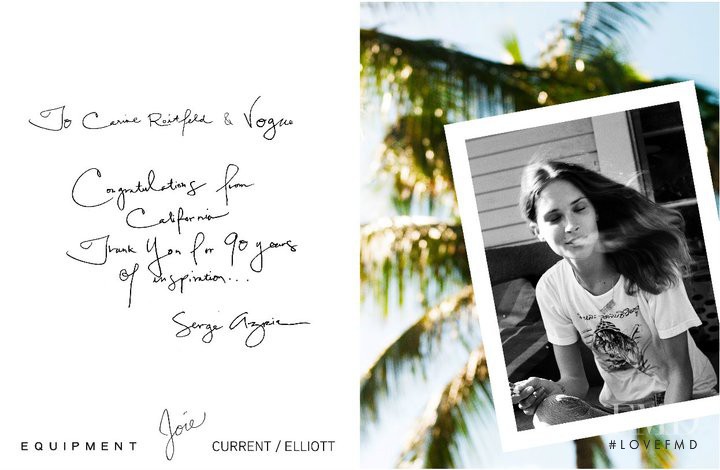 To Carine Roitfeld & Vogue
Congratulations from
California
Thank You for 90 years
of inspiration...
Serge Azria
Joie
EQUIPMENT
CURRENT / ELLIOTT
FMD
#LOVEFMD